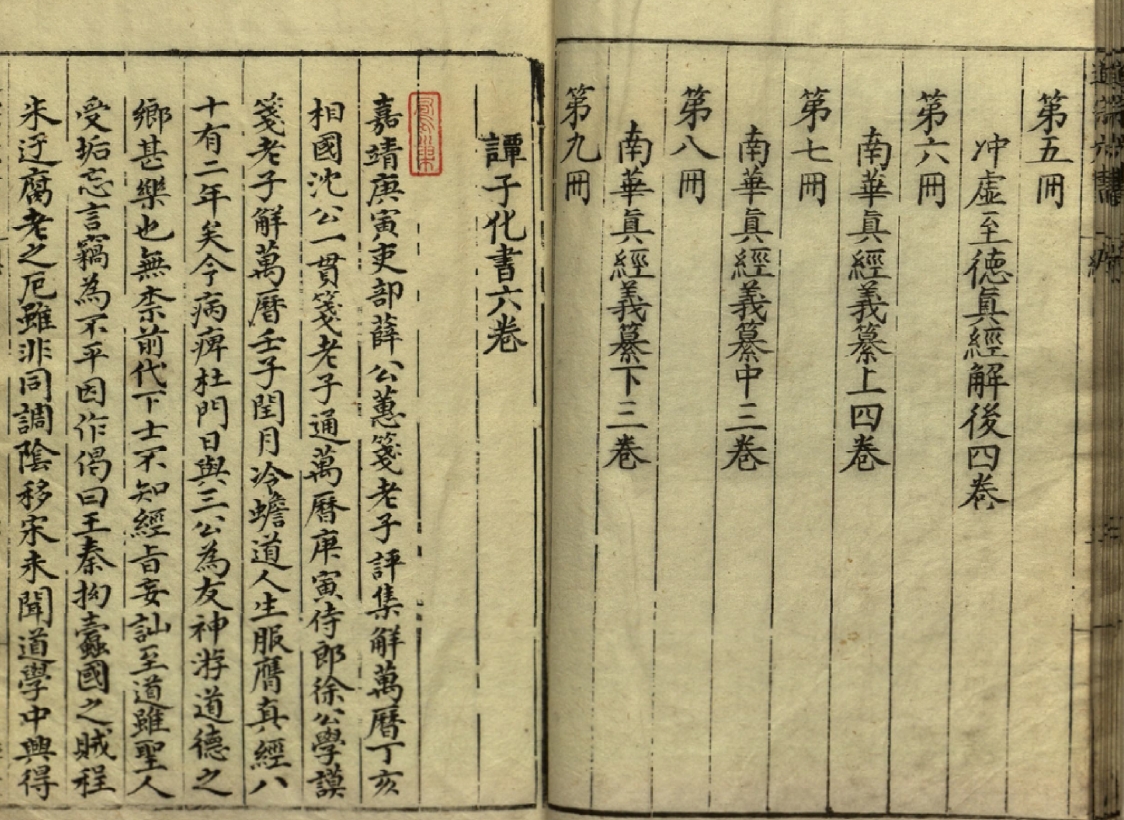 第五冊
冲虛至德眞經解後四卷
第六冊
南華眞經義纂上四卷
第七冊
南華眞經義纂中三卷
第八冊
南華眞經義纂下三卷
第九冊
譚子化書六卷
嘉靖庚寅吏部薛公蕙箋老子評集解萬曆丁亥
相國沈公一貫箋老子通萬曆庚寅侍郎徐公學謨
箋老子解萬曆壬子閏月冷蟾道人生服膺真經八
十有二年矣今病痺杜門日與三公為友神游道德之
鄉甚樂也無柰前代下士不知經旨妄訕至道雖聖人
受垢忘言竊為不平因作偈曰王秦拗蠹國之賊程
朱迂腐老之厄雖非同調陰移宋未聞道學中興得